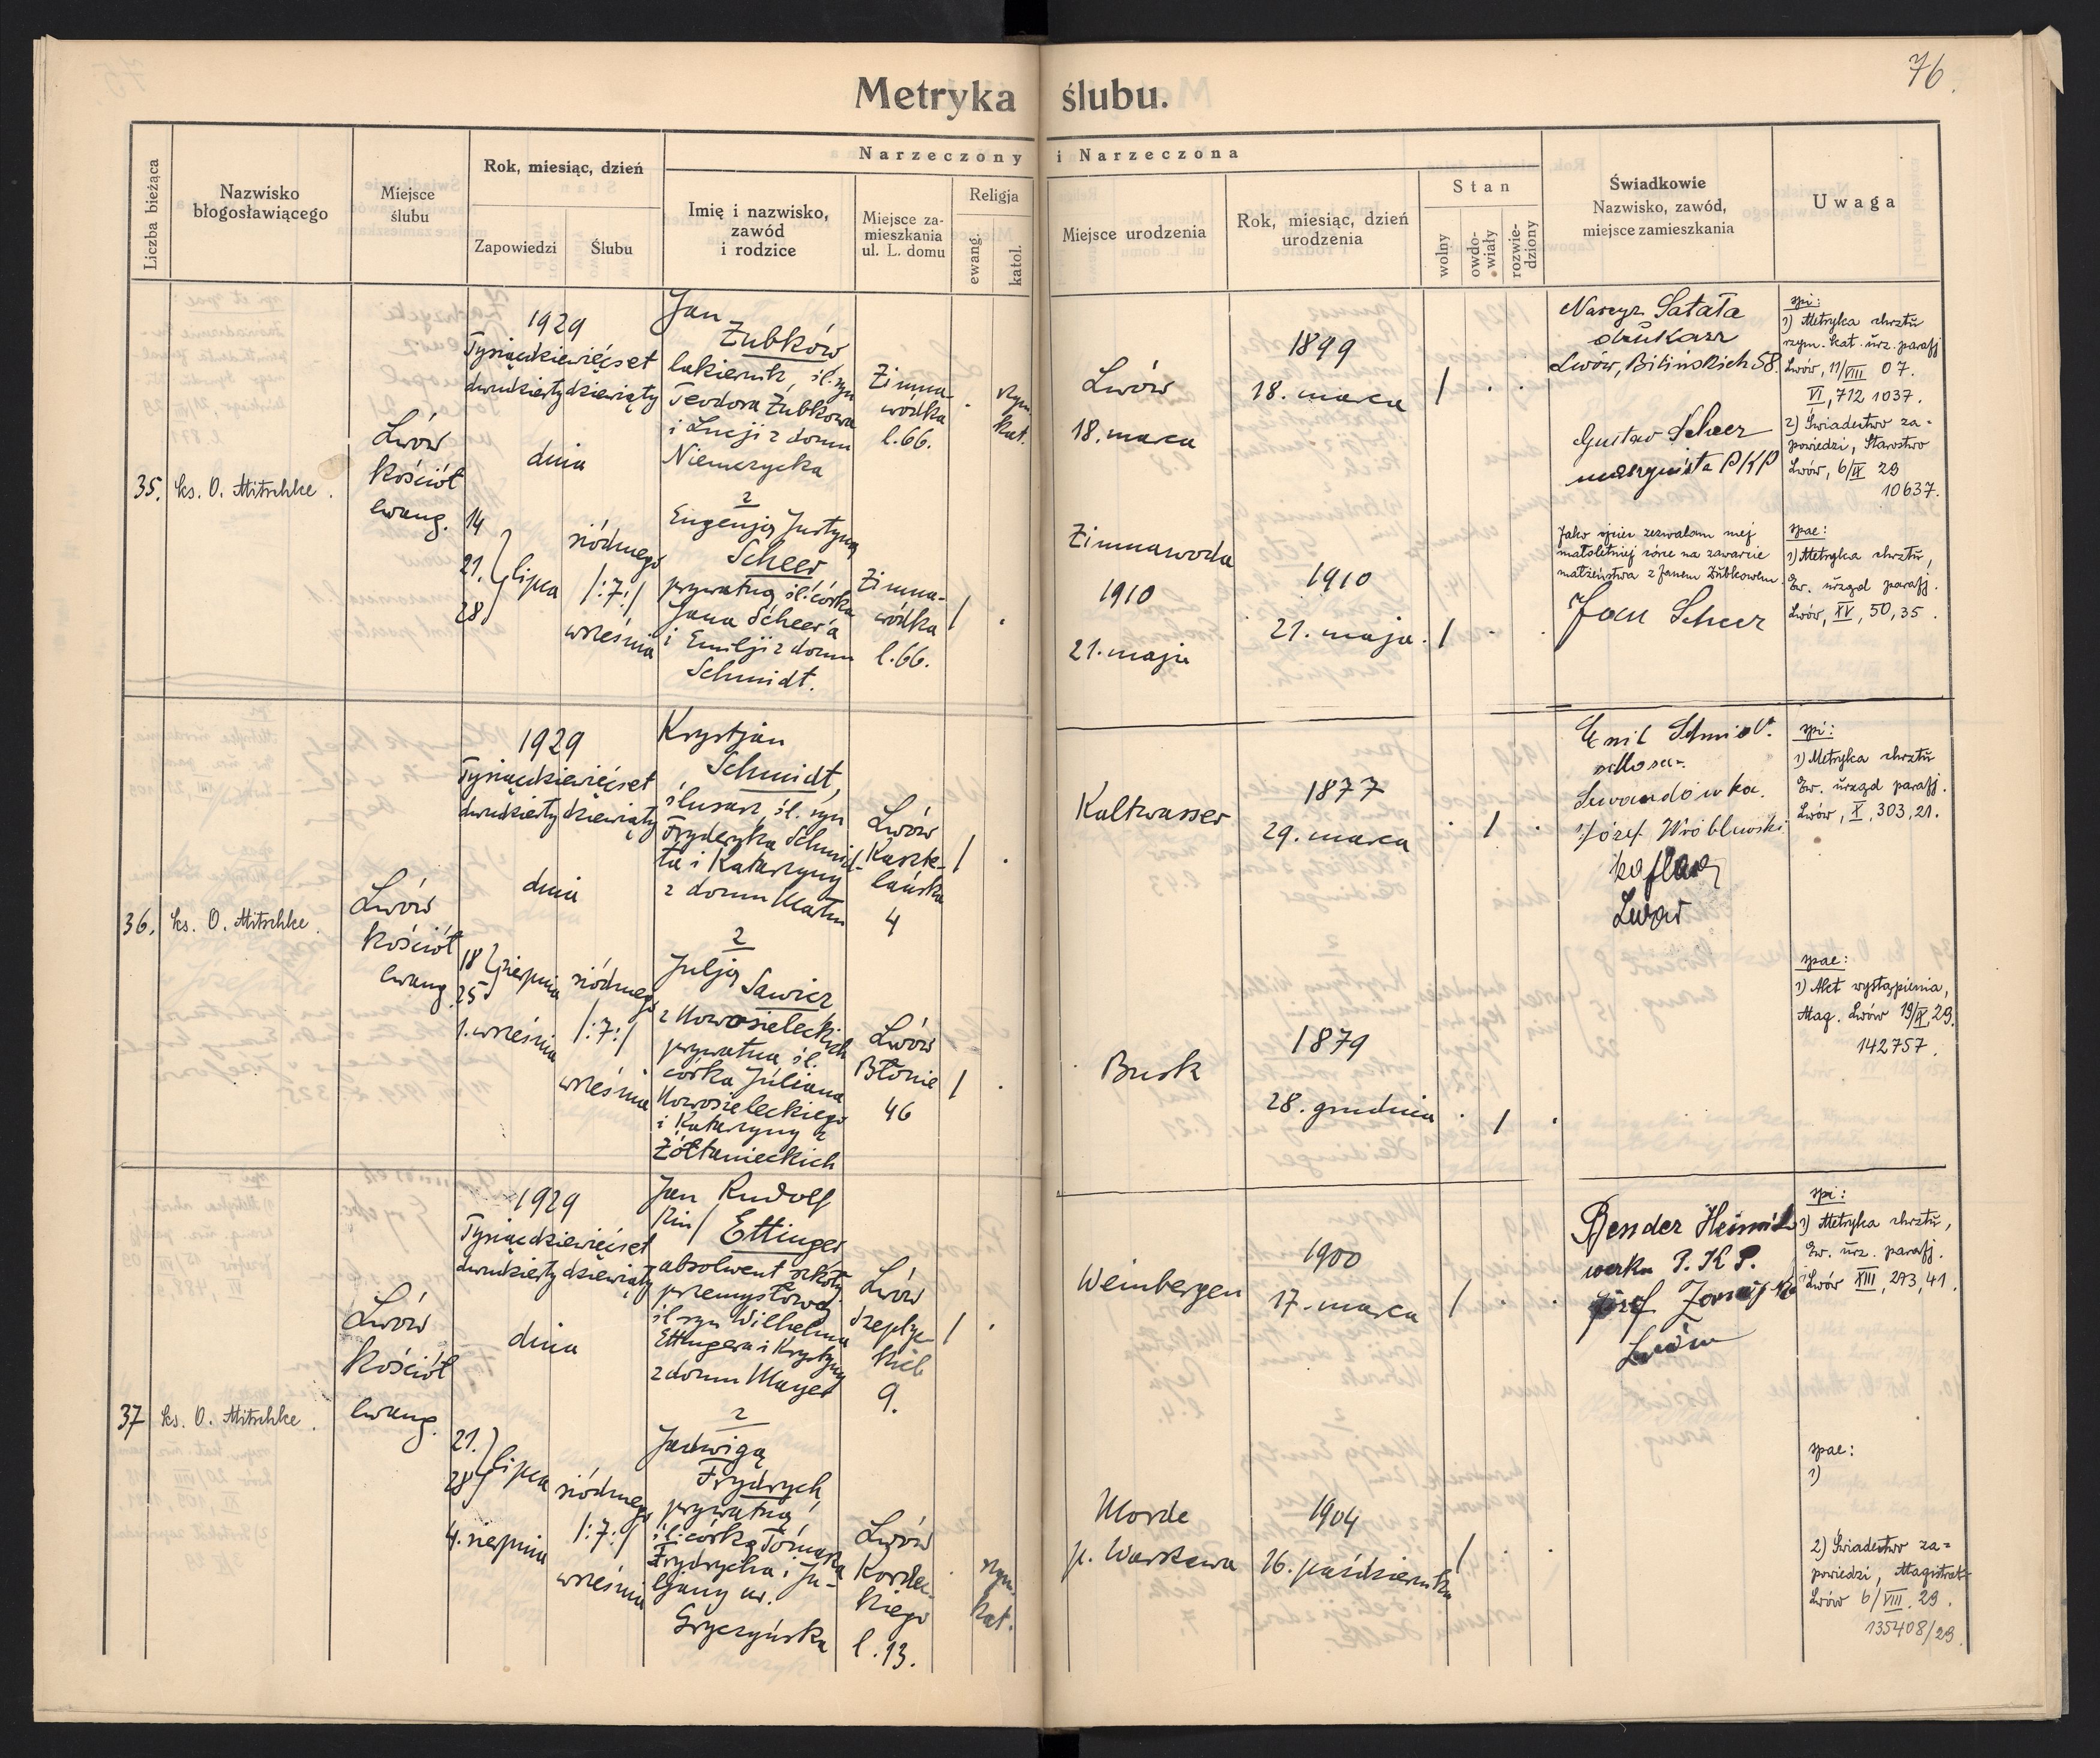 76.
Metryka ślubu.
Liczba bieżąca
Nazwisko
błogosławiącego
Miejsce
ślubu
Rok, miesiąc, dzień
Zapowiedzi
Ślubu
Narzeczony i Narzeczona
Imię i nazwisko,
zawód
i rodzice
Miejsce za-
mieszkania
ul. L. domu
Religja
ewang.
katol.
Miejsce urodzenia
Rok, miesiąc, dzień
urodzenia
Stan
wolny
owdo-
wiały
rozwie-
dziony
Świadkowie
Nazwisko, zawód,
miejsce zamieszkania
Uwaga
35.
ks. O. Mitschke.
Lwów
kościół
ewang.
1929
Tysiącdziewięćset
dwudziestydziewiąty
dnia
14
21. lipca
28
siódmego
/:7:/
września
Jan
Zubków
lakiernik, śl. syn
Teodora Zubkowa
i Łucji z domu
Niemczycka
z
Eugenją Justyną
Scheer
prywatną śl. córką
Jana Scheer'a
i Emilji z domu
Schmidt.
Zimna-
wódka
l. 66.
Zimna-
wódka
l. 66.
rzym.
kat.
Lwów
18. marca
Zimnawoda
1910
21. maja
1899
18. marca
1910
21. maja.
Narcyz Satała
drukarz
Lwów, Bilińskich 58.
Gustav Scheer
maszynista PKP
Jako ojciec zezwalam mej
małoletniej córce na zawarcie
małżeństwa z Janem Zubkowem.
Jan Scheer
spi:
1) Metryka chrztu
rzym. kat. urz. parafj
Lwów, 11/VIII 07.
VI, 712 1037.
2) Świadectwo za-
powiedzi, Starostwo
Lwów, 6/IX 29
10637.
spae:
1) Metryka chrztu,
Ew. urząd parafj.
Lwów, XV, 50, 35.
36.
ks. O. Mitschke.
Lwów
kościół
ewang.
1929
Tysiącdziewięćset
dwudziestydziewiąty
dnia
18
25 sierpnia
1. września
siódmego
/:7:/
września
Krystjan
Schmidt,
ślusarz, śl. syn
Fryderyka Schmid-
ta i Katarzyny
z domu
z
Julją
Sawicz
z Nowosieleckich
prywatna śl.
córka Juliana
Nowosieleckiego
i Katarzyny z
Żółtanieckich
Lwów
Kaszte-
lańska
4
Lwów
Błonie
46
Kaltwasser
Busk
1877
29. marca
1879
28. grudnia
Emil Schmidt.
Józef Wróblewski
kaflarz
Lwów
spi:
1) Metryka chrztu
Ew. urząd parafj.
Lwów, X, 303, 21.
spae:
1) Akt wystąpienia,
Mag. Lwów 19/IX, 29.
142757.
37
ks. O. Mitschke.
Lwów
kościół
ewang.
1929
Tysiącdziewięćset
dwudziestydziewiąty
dnia
21.
28 lipca
4. sierpnia
siódmego
/:7:/
września
Jan Rudolf
Ettinger
absolwent szkoły
przemysłowej
śl. syn Wilhelma
Ettingera i Krystyny
z domu Mayer
z
Jadwigą
Frydrych,
prywatną,
śl. córką Tomasza
Frydrycha i Ju-
ljany ur.
Gryczyńska
Lwów
Szeptyc-
kich
9.
Lwów
Kordec-
kiego
l. 13.
rzym.
kat.
Weinbergen
Morde
p. Warszawa
1900
17. marca
1904
16. października
Bender Heinrich
werkm. P. K. P.
Józef
Lwów
spi:
1) Metryka chrztu,
Ew. urz. parafj.
Lwów XIII, 273, 41.
spae:
1)
2) Świadectwo za-
powiedzi, Magistrat
Lwów 6/VIII. 29.
135408/29.